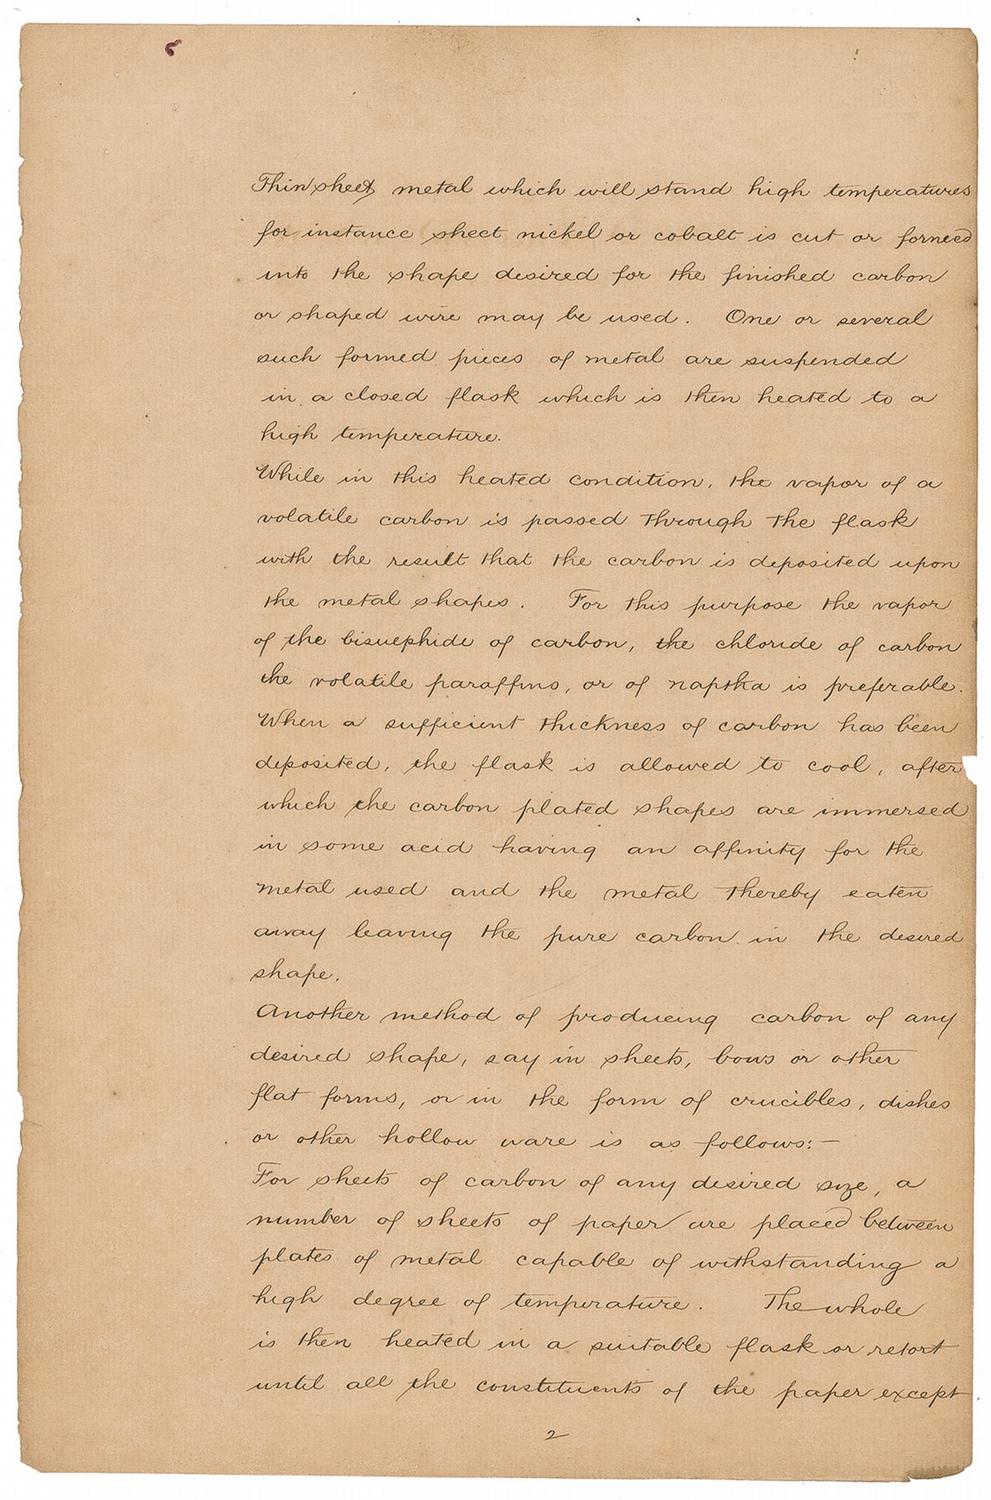 Thin sheet metal which will stand high temperatures
for instance sheet nickel or cobalt is cut or formed
into the shape desired for the finished carbon
or shaped wire may be used. One or several
such formed pieces of metal are suspended
in a closed flask which is then heated to a
high temperature.
While in this heated condition, the vapor of a
volatile carbon is passed through the flask
with the result that the carbon is deposited upon
the metal shapes. For this purpose the vapor
of the bisulphide of carbon, the chloride of carbon
the volatile paraffins, or of naptha is preferable.
When a sufficient thickness of carbon has been
deposited, the flask is allowed to cool, after
which the carbon plated shapes are immersed
in some acid having an affinity for the
metal used and the metal thereby eaten
away leaving the pure carbon in the desired
shape.
Another method of producing carbon of any
desired shape, say in sheets, bows or other
flat forms, or in the form of crucibles, dishes
or other hollow ware is as follows:—
For sheets of carbon of any desired size, a
number of sheets of paper are placed between
plates of metal capable of withstanding a
high degree of temperature. The whole
is then heated in a suitable flask or retort
until all the constituents of the paper except
2